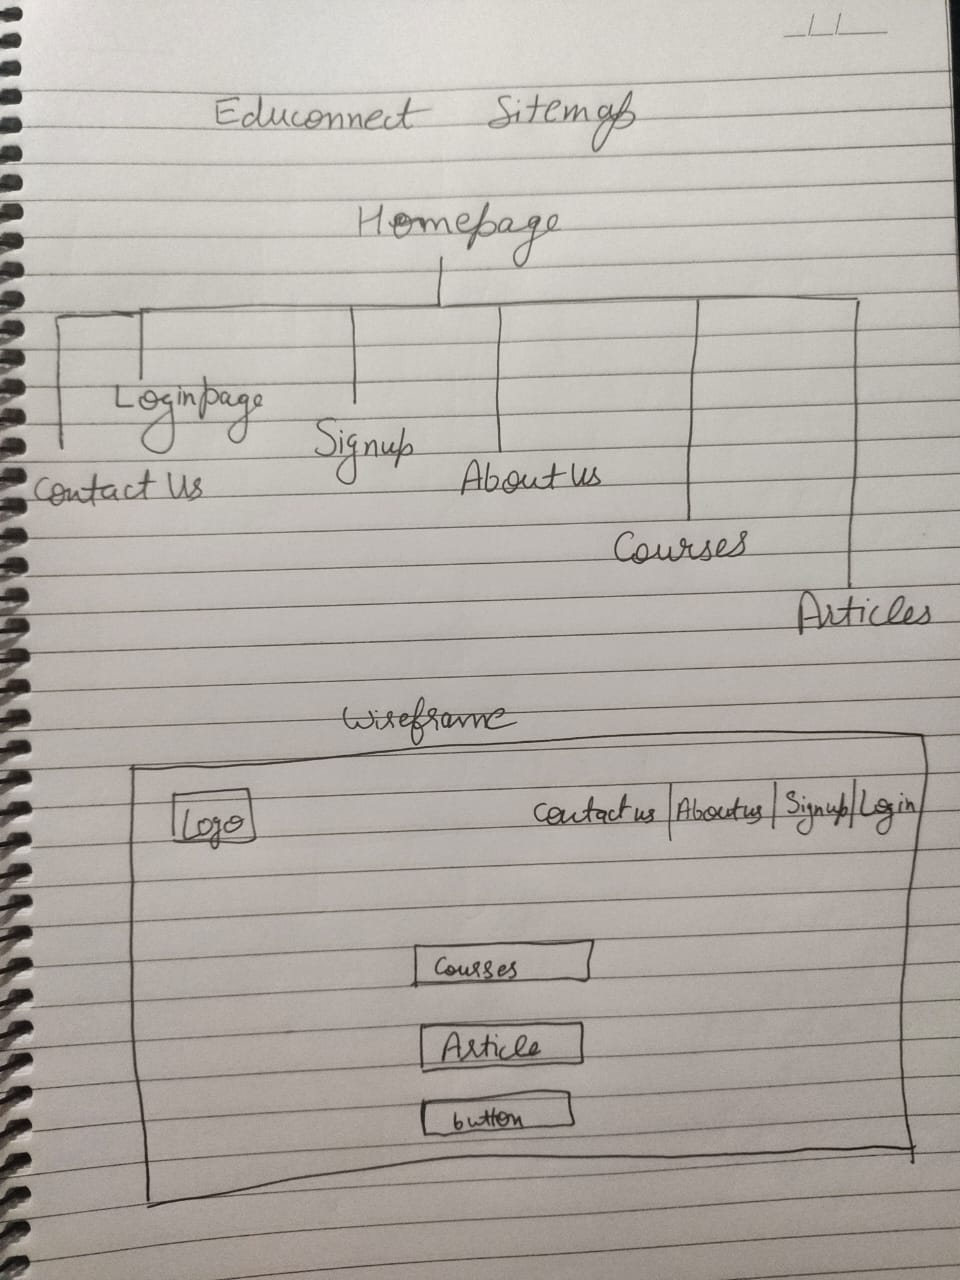 Educonnect Sitemap
Homepage
Loginpage
Signup
Contact Us
About Us
Courses
Articles
Wireframe
Logo
Contact us | About us | Signup | Login
Courses
Article
button